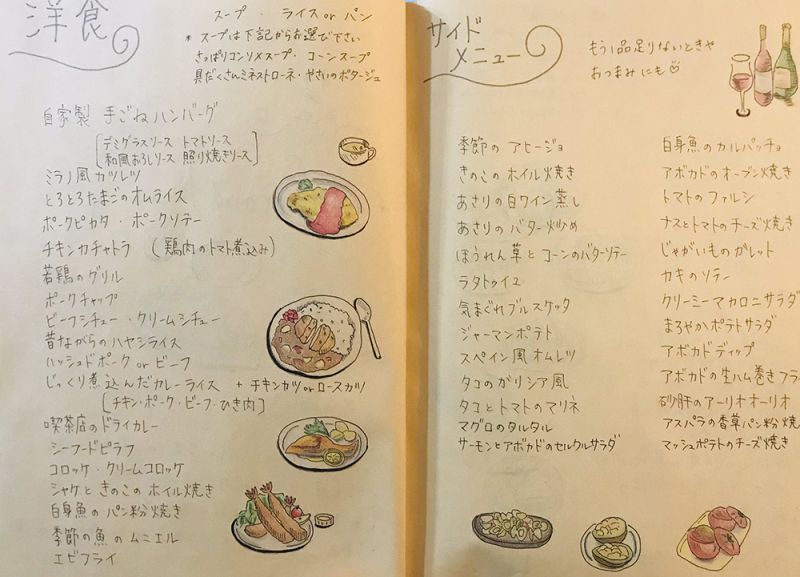 洋食
スープ・ライス or パン
* スープは下記からお選び下さい
さっぱりコンソメスープ・コーンスープ
具だくさんミネストローネ・やさいのポタージュ
自家製 手ごねハンバーグ
デミグラスソース トマトソース
和風おろしソース 照り焼きソース
ミラノ風カツレツ
とろとろたまごのオムライス
ポークピカタ・ポークソテー
チキンカチャトラ (鶏肉のトマト煮込み)
若鶏のグリル
ポークチャップ
ビーフシチュー・クリームシチュー
昔ながらのハヤシライス
ハッシュドポーク or ビーフ
じっくり煮込んだカレーライス + チキンカツ or ロースカツ
[チキン・ポーク・ビーフ・ひき肉]
喫茶店のドライカレー
シーフードピラフ
コロッケ・クリームコロッケ
シャケときのこのホイル焼き
白身魚のパン粉焼き
季節の魚のムニエル
エビフライ
サイド
メニュー
もう1品足りないときや
おつまみにも♡
季節のアヒージョ
きのこのホイル焼き
あさりの白ワイン蒸し
あさりのバター炒め
ほうれん草とコーンのバターソテー
ラタトゥイユ
気まぐれブルスケッタ
ジャーマンポテト
スペイン風オムレツ
タコのガリシア風
タコとトマトのマリネ
マグロのタルタル
サーモンとアボカドのセルクルサラダ
白身魚のカルパッチョ
アボカドのオーブン焼き
トマトのファルシ
ナスとトマトのチーズ焼き
じゃがいものガレット
カキのソテー
クリーミーマカロニサラダ
まろやかポテトサラダ
アボカドディップ
アボカドの生ハム巻きフラ
砂肝のアーリオオーリオ
アスパラの香草パン粉焼
マッシュポテトのチーズ焼き